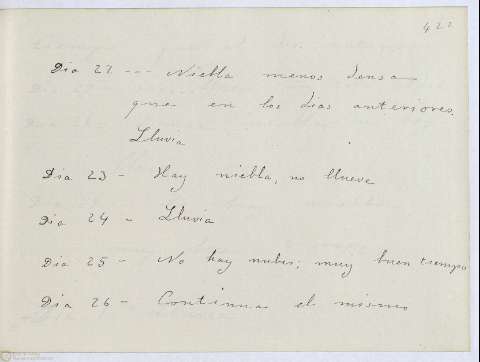 422
Dia 21 --- Niebla menos densa
que en los dias anteriores.
Lluvia
Dia 23 - Hay niebla, no llueve
Dia 24 - Lluvia
Dia 25 - No hay nubes; muy buen tiempo
Dia 26 - Continua el mismo